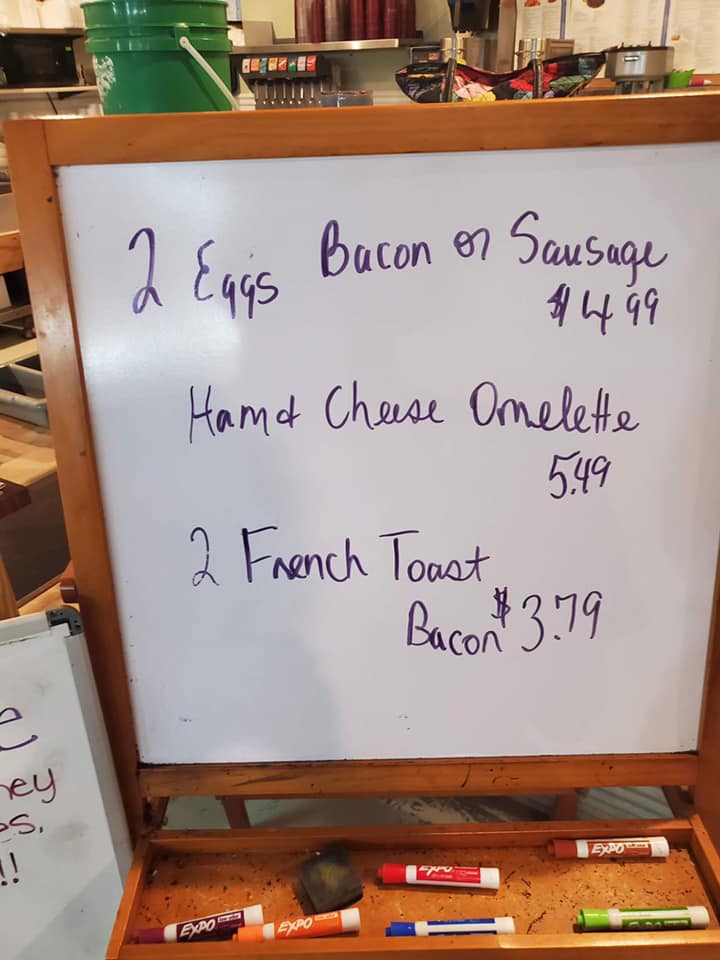 2 Eggs Bacon or Sausage
$4.99
Ham & Cheese Omelette
5.49
2 French Toast
Bacon $3.79
e
ney
es.
!!
EXPO
EXPO
EXPO
EXPO